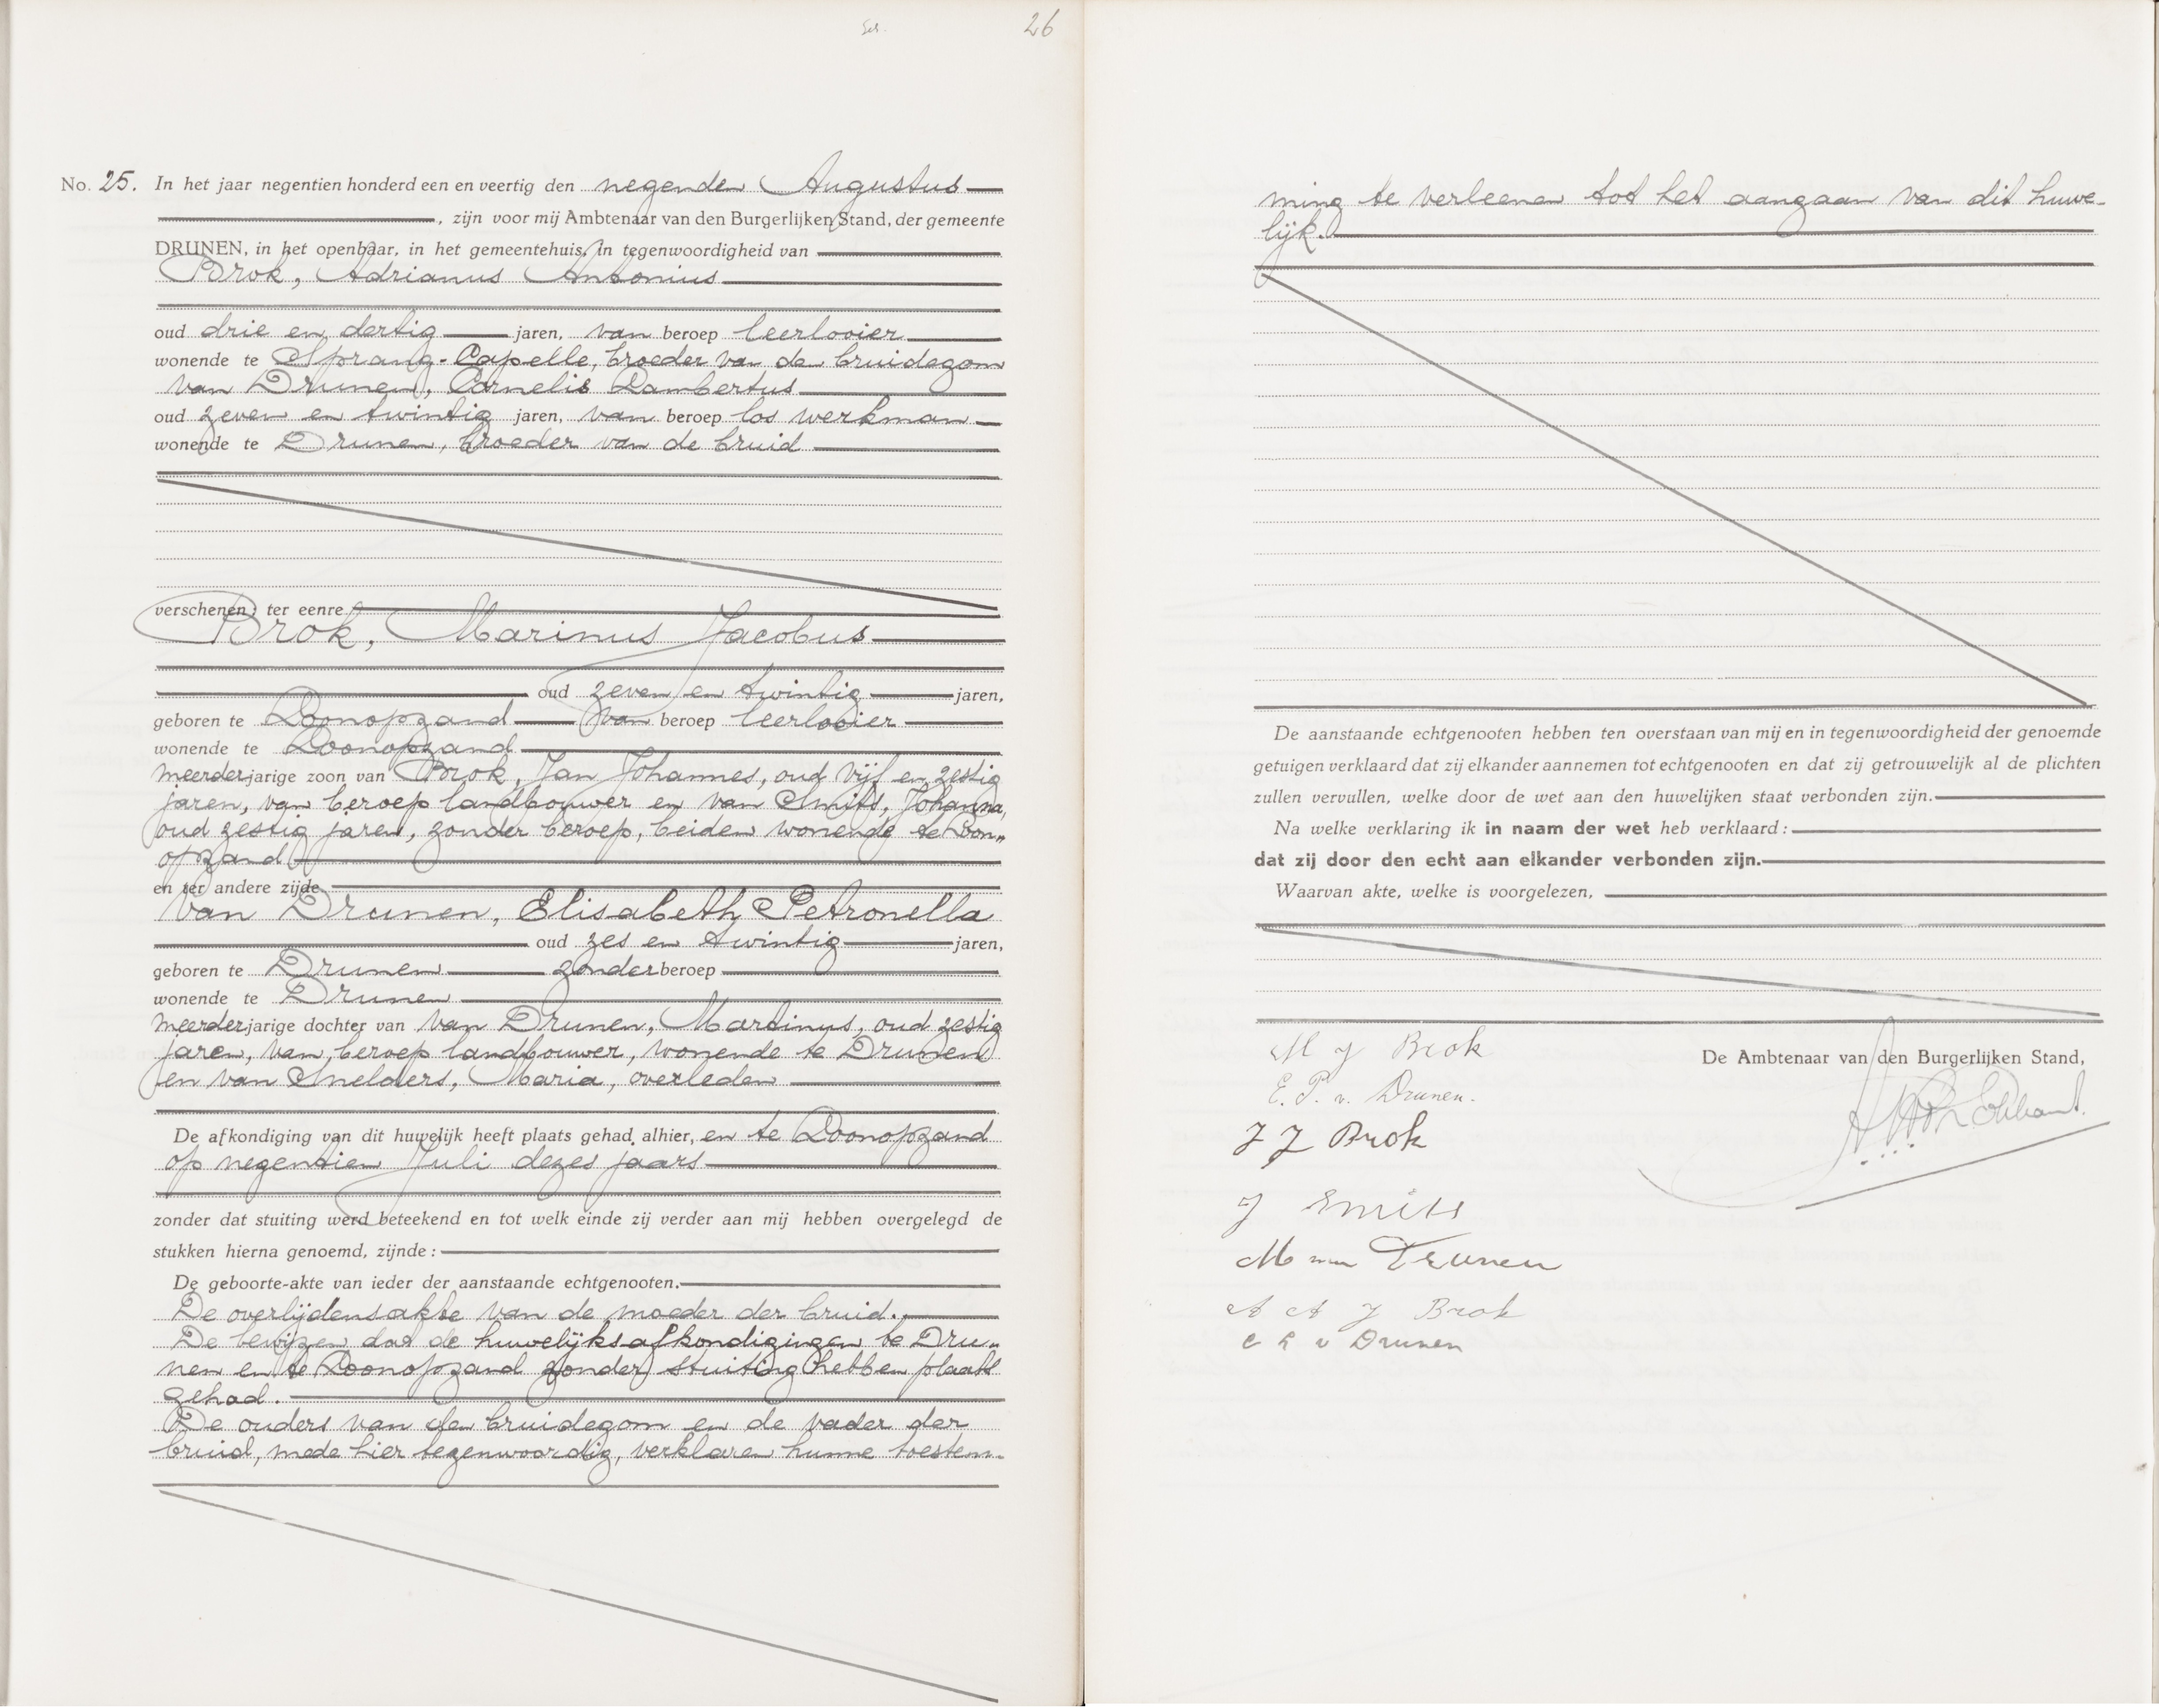 26
No. 25. In het jaar negentien honderd een en veertig den negenden Augustus
, zijn voor mij Ambtenaar van den Burgerlijken Stand, der gemeente
DRUNEN, in het openbaar, in het gemeentehuis, in tegenwoordigheid van
Brok, Adrianus Antonius
oud drie en dertig jaren, van beroep leerlooier
wonende te Sprang-Capelle, broeder van de bruidegom
van Drunen, Cornelis Lambertus
oud zeven en twintig jaren, van beroep los werkman
wonende te Drunen, broeder van de bruid
verschenen; ter eenre
Brok, Marinus Jacobus
oud zeven en twintig jaren,
geboren te Loonopzand van beroep leerlooier
wonende te Loonopzand
meerderjarige zoon van Brok, Jan Johannes, oud vijf en zestig
jaren, van beroep landbouwer en van Smits, Johanna,
oud zestig jaren, zonder beroep, beiden wonende te Loon„
opzand
en ter andere zijde
van Drunen, Elisabeth Petronella
oud zes en twintig jaren,
geboren te Drunen zonder beroep
wonende te Drunen
meerderjarige dochter van van Drunen, Martinus, oud zestig
jaren, van beroep landbouwer, wonende te Drunen
en van Snelders, Maria, overleden
De afkondiging van dit huwelijk heeft plaats gehad alhier, en te Loonopzand
op negentien Juli dezes jaars
zonder dat stuiting werd beteekend en tot welk einde zij verder aan mij hebben overgelegd de
stukken hierna genoemd, zijnde:
De geboorte-akte van ieder der aanstaande echtgenooten.
De overlijdensakte van de moeder der bruid.
De bewijzen dat de huwelijksafkondigingen te Dru„
nen en te Loonopzand zonder stuiting hebben plaats
gehad.
De ouders van den bruidegom en de vader der
bruid, mede hier tegenwoordig, verklaren hunne toestem-
ming te verleenen tot het aangaan van dit huwe-
lijk.
De aanstaande echtgenooten hebben ten overstaan van mij en in tegenwoordigheid der genoemde
getuigen verklaard dat zij elkander aannemen tot echtgenooten en dat zij getrouwelijk al de plichten
zullen vervullen, welke door de wet aan den huwelijken staat verbonden zijn.
Na welke verklaring ik in naam der wet heb verklaard:
dat zij door den echt aan elkander verbonden zijn.
Waarvan akte, welke is voorgelezen,
M J Brok
De Ambtenaar van den Burgerlijken Stand,
E. P. v. Drunen.
J J Brok
J Smits
M van Drunen
A A J Brok
C L v Drunen